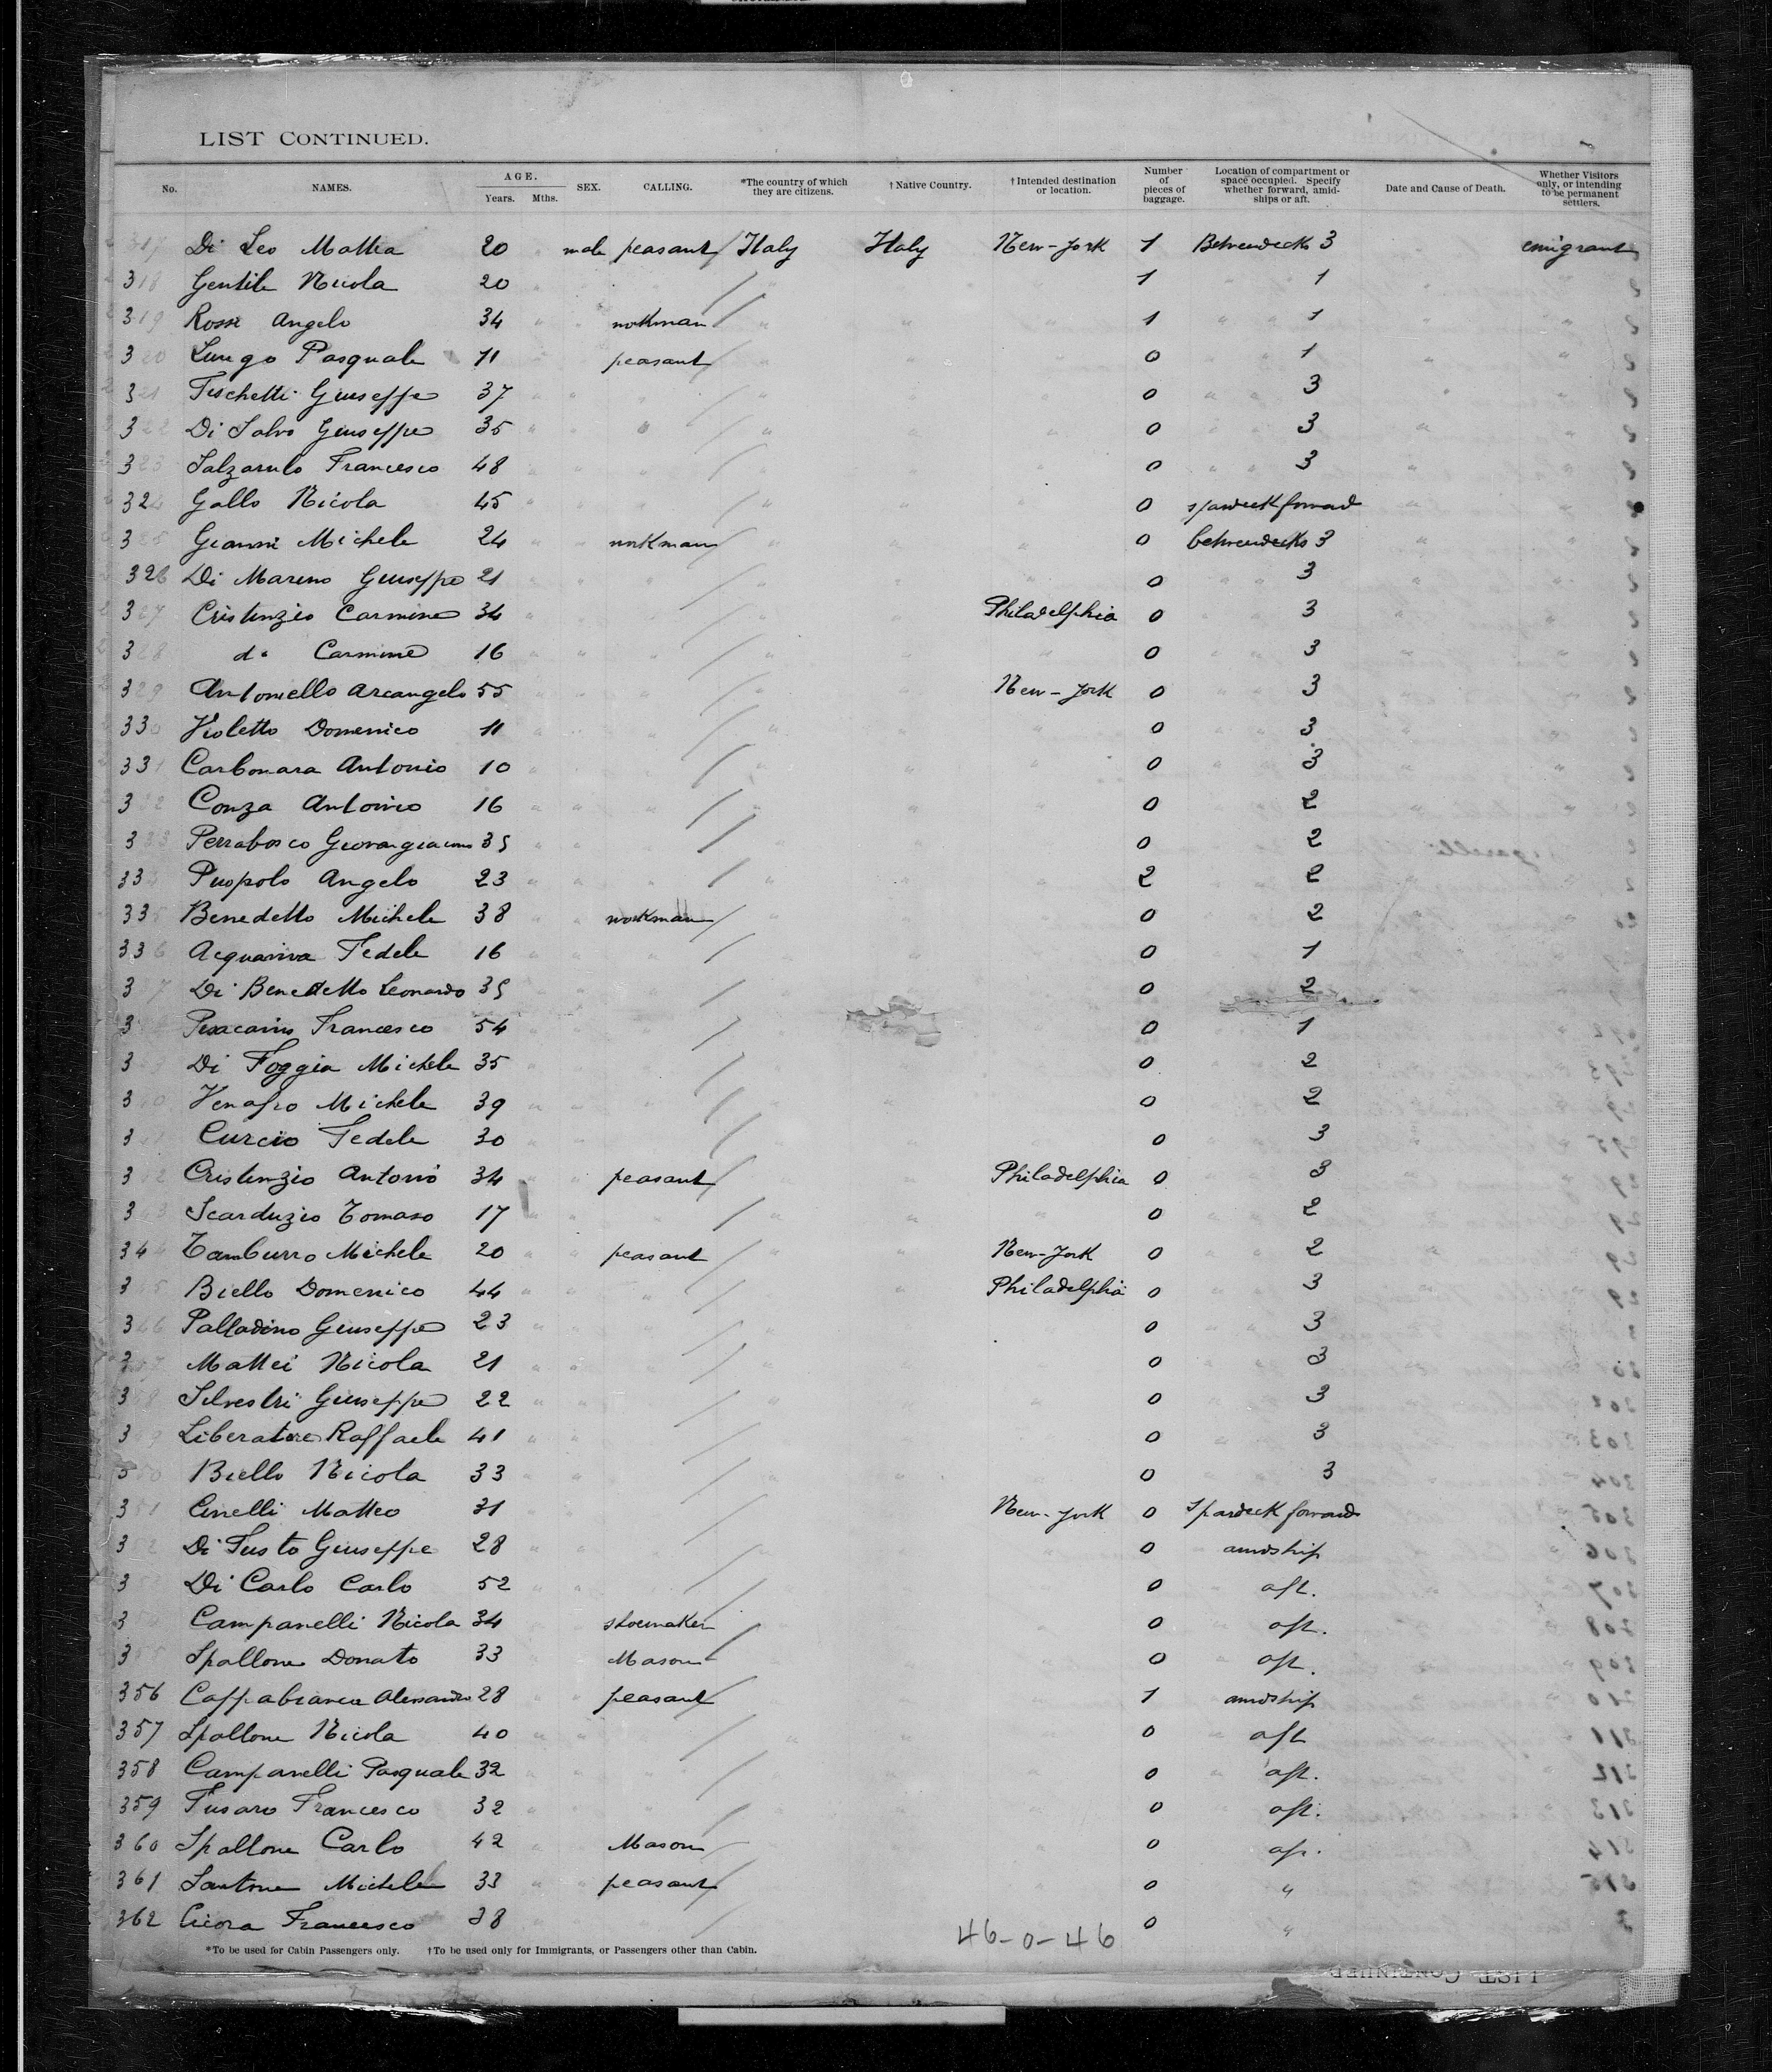 LIST CONTINUED.
No. NAMES. AGE. Years. Mths. SEX. CALLING. *The country of which they are citizens. †Native Country. †Intended destination or location. Number of pieces of baggage. Location of compartment or space occupied. Specify whether forward, amidships or aft. Date and Cause of Death. Whether Visitors only, or intending to be permanent settlers.
317 Di Leo Mattia 20 male peasant Italy Italy New-York 1 Betweendecks 3 emigrant
318 Gentile Nicola 20 " 1 1
319 Rossi Angelo 34 " workman " 1 1
320 Lungo Pasquale 11 peasant 0 1
321 Fischetti Giuseppe 37 " 0 3
322 Di Salvo Giuseppe 35 " " 0 3
323 Salzarulo Francesco 48 " 0 3
324 Gallo Nicola 45 " 0 spardeck forward
325 Gianni Michele 24 " workman 0 betweendecks 3
326 Di Mareno Giuseppe 21 0 3
327 Cristinzio Carmine 34 Philadelphia 0 3
328 d° Carmine 16 " 0 3
329 Antoniello Arcangelo 55 New-York 0 3
330 Violetto Domenico 11 0 3
331 Carbonara Antonio 10 0 3
332 Conza Antonio 16 0 2
333 Perrabosco Giovangiacomo 35 0 2
334 Puopolo Angelo 23 2 2
335 Benedetto Michele 38 workman 0 2
336 Acquaviva Fedele 16 0 1
337 Di Benedetto Leonardo 35 0 2
3 Francesco 54 0 1
3 Di Foggia Michele 35 0 2
340 Venafro Michele 39 0 2
341 Curcio Fedele 30 0 3
342 Cristinzio Antonio 34 peasant Philadelphia 0 3
343 Scarduzio Tomaso 17 " 0 2
344 Tamburro Michele 20 peasant New-York 0 2
345 Biello Domenico 44 " Philadelphia 0 3
346 Palladino Giuseppe 23 0 3
347 Mattei Nicola 21 0 3
348 Silvestri Giuseppe 22 0 3
349 Liberatore Raffaele 41 0 3
350 Biello Nicola 33 0 3
351 Cinelli Matteo 31 New-York 0 Spardeck forward
352 Di Iusto Giuseppe 28 0 amidship
353 Di Carlo Carlo 52 0 aft.
354 Campanelli Nicola 34 shoemaker 0 aft.
355 Spallone Donato 33 Mason 0 aft.
356 Cappabianca Alessandro 28 peasant 1 amidship
357 Spallone Nicola 40 0 aft
358 Campanelli Pasquale 32 0 aft.
359 Fusaro Francesco 32 0 aft.
360 Spallone Carlo 42 Mason 0 aft.
361 Santone Michele 33 peasant 0 "
362 Francesco 38 0 "
46-0-46
*To be used for Cabin Passengers only. †To be used only for Immigrants, or Passengers other than Cabin.
LIST CONTINUED